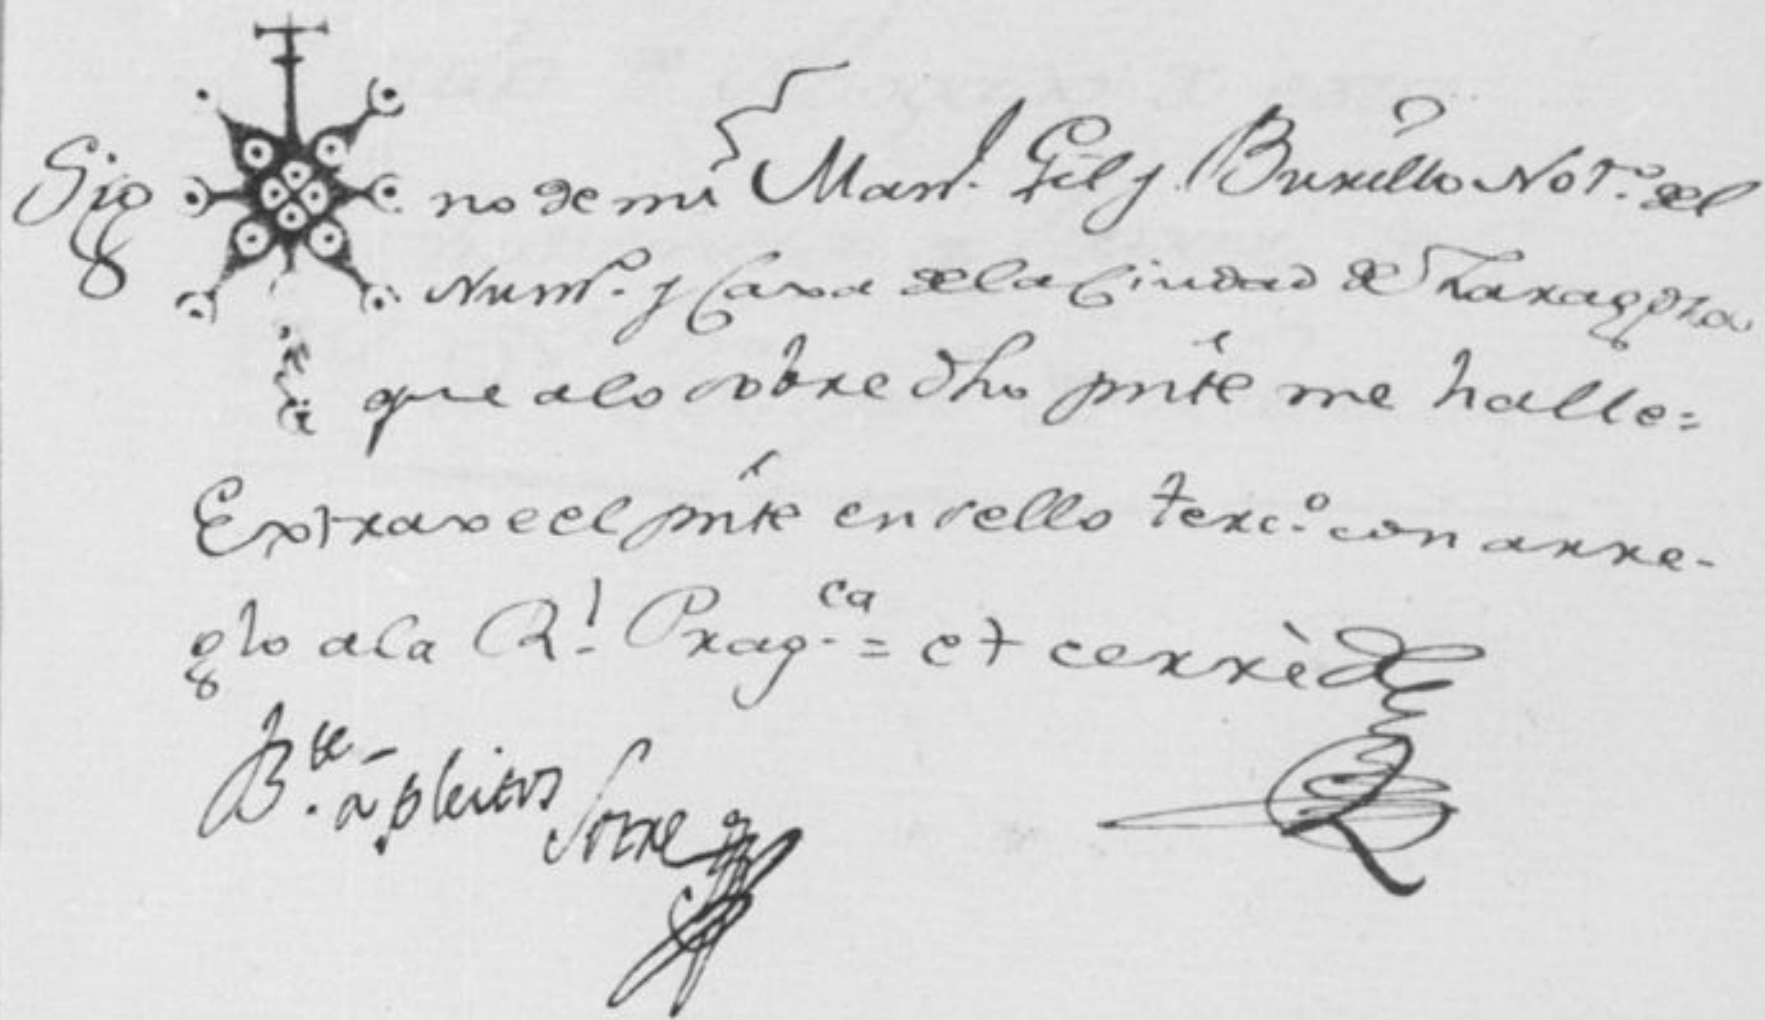 Sig no de mi Man.l Gil y Burillo Not.o del
Num.o y Caxa de la Ciudad de Zaragoza
que a lo sobre dho pnte me halle =
Extraxe el pnte en sello terc.o con arre-
glo a la R.l Prag.ca = et cerrè
B.te a pleitos